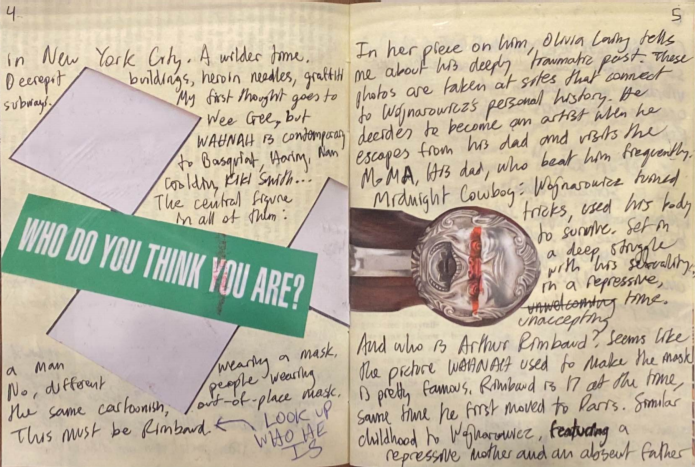 4
in New York City. A wilder time.
Decrepit buildings, heroin needles, graffiti
subways. My first thought goes to
Wee Gee, but
WAHNAH is contemporary
to Basquiat, Haring, Nan
Goldin, Kiki Smith...
The central figure
in all of them:
WHO DO YOU THINK YOU ARE?
a man wearing a mask.
No, different people wearing
the same cartoonish, out-of-place mask.
This must be Rimbaud
LOOK UP
WHO HE
IS
5
In her piece on him, Olivia Laing tells
me about his deeply traumatic past. These
photos are taken at sites that connect
to Wojnarowicz's personal history. He
decides to become an artist when he
escapes from his dad and visits the
MoMA, His dad, who beat him frequently.
Midnight Cowboy: Wojnarowicz turned
tricks, used his body
to survive. Set in
a deep struggle
with his sexuality,
in a repressive,
unwelcoming time.
unaccepting
And who is Arthur Rimbaud? Seems like
the picture WAHNAH used to make the mask
is pretty famous. Rimbaud is 17 at the time,
same time he first moved to Paris. Similar
childhood to Wojnarowicz, featuring a
repressive mother and an absent father